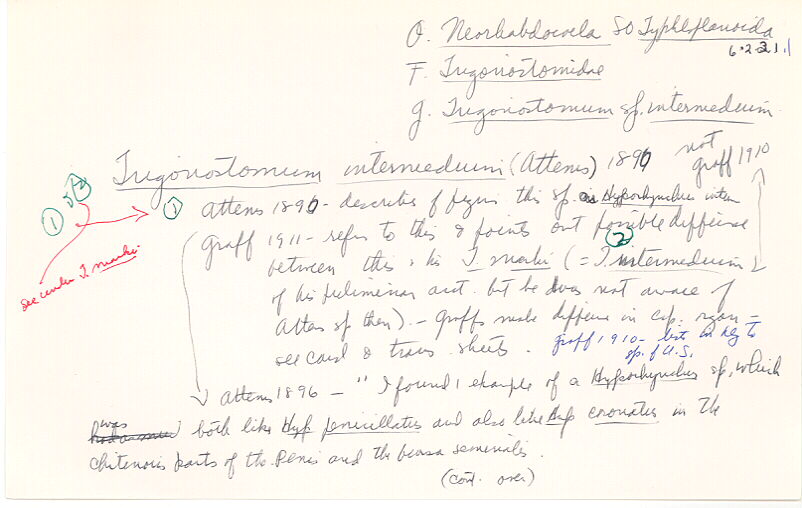 O. Neorhabdocoela SO Typhloplanoida
6·2·21.1
F. Trigonostomidae
g. Trigonostomum sp. intermedium
Trigonostomum intermedium (Attems) 1896
not
graff 1910
① ② Attems 1896 - describes & figures this sp. as Hyporhynchus interm
①
Graff 1911 - refers to this & points out possible difference
②
between this & his T. marki (= T. intermedium
see under T. marki
of his preliminary acct. but he was not aware of
Attems sp then). - Graffs make difference in cop. organ -
see card & trans sheets.
graff 1910 - list in key to
sp. of U.S.
Attems 1896 - "I found 1 example of a Hyporhynchus sp, which
was
both like Hyp penicillatus and also like Hyp coronatus in the
chitenois parts of the Penis and the bursa seminalis.
(cont. over)